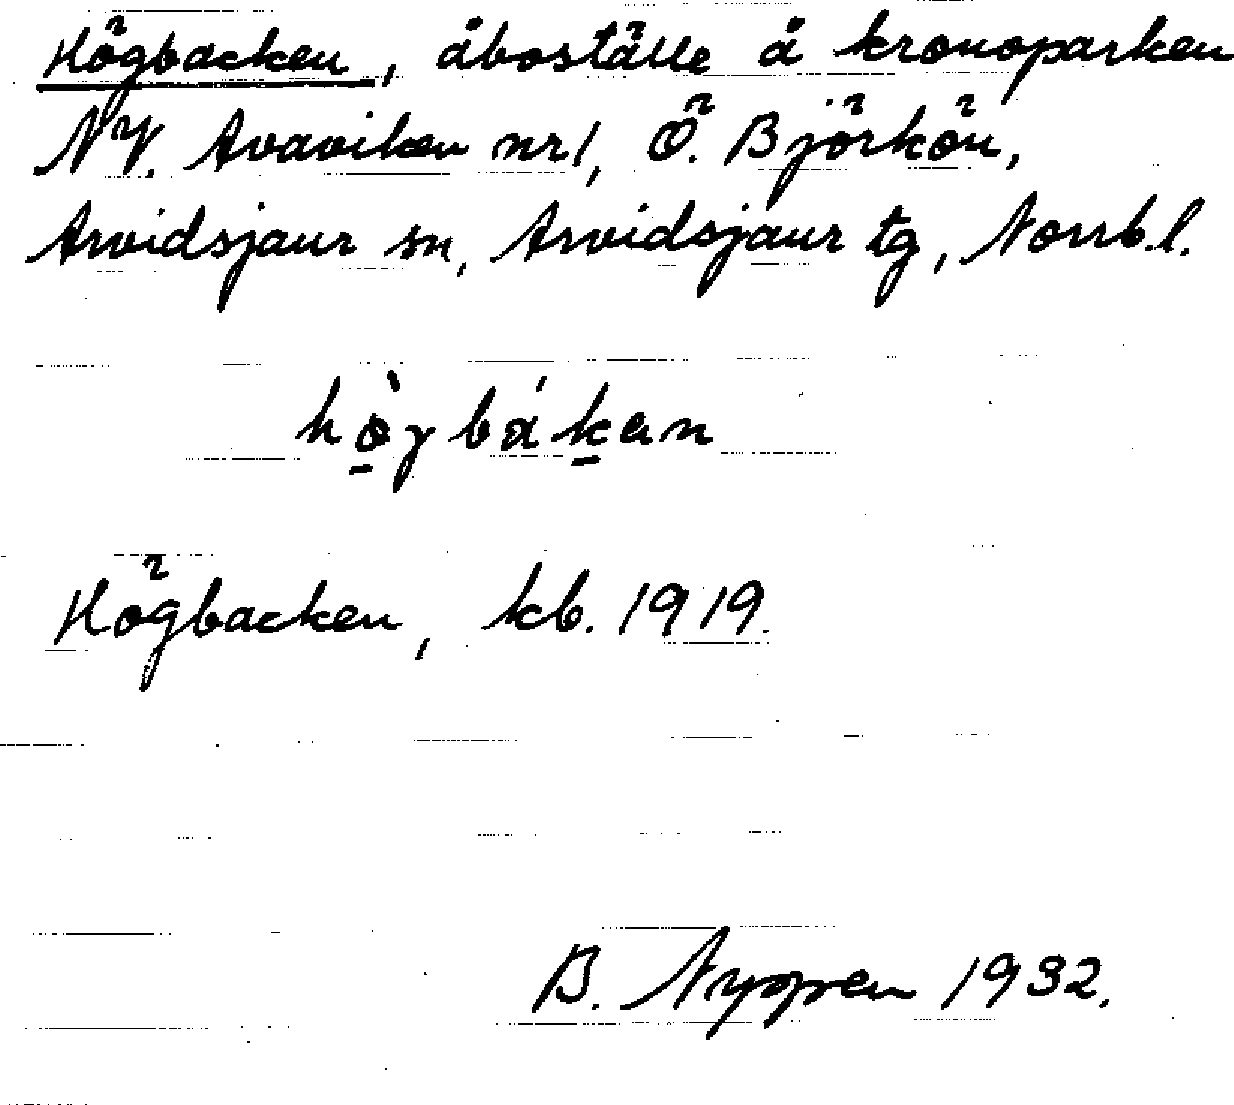 Högbacken, åboställe å kronoparken
NV. Avaviken nr 1, Ö. Björkön,
Arvidsjaur sn, Arvidsjaur tg, Norrb.l.
hò̱gbáḵen
Högbacken, kb. 1919.
B. 1932.